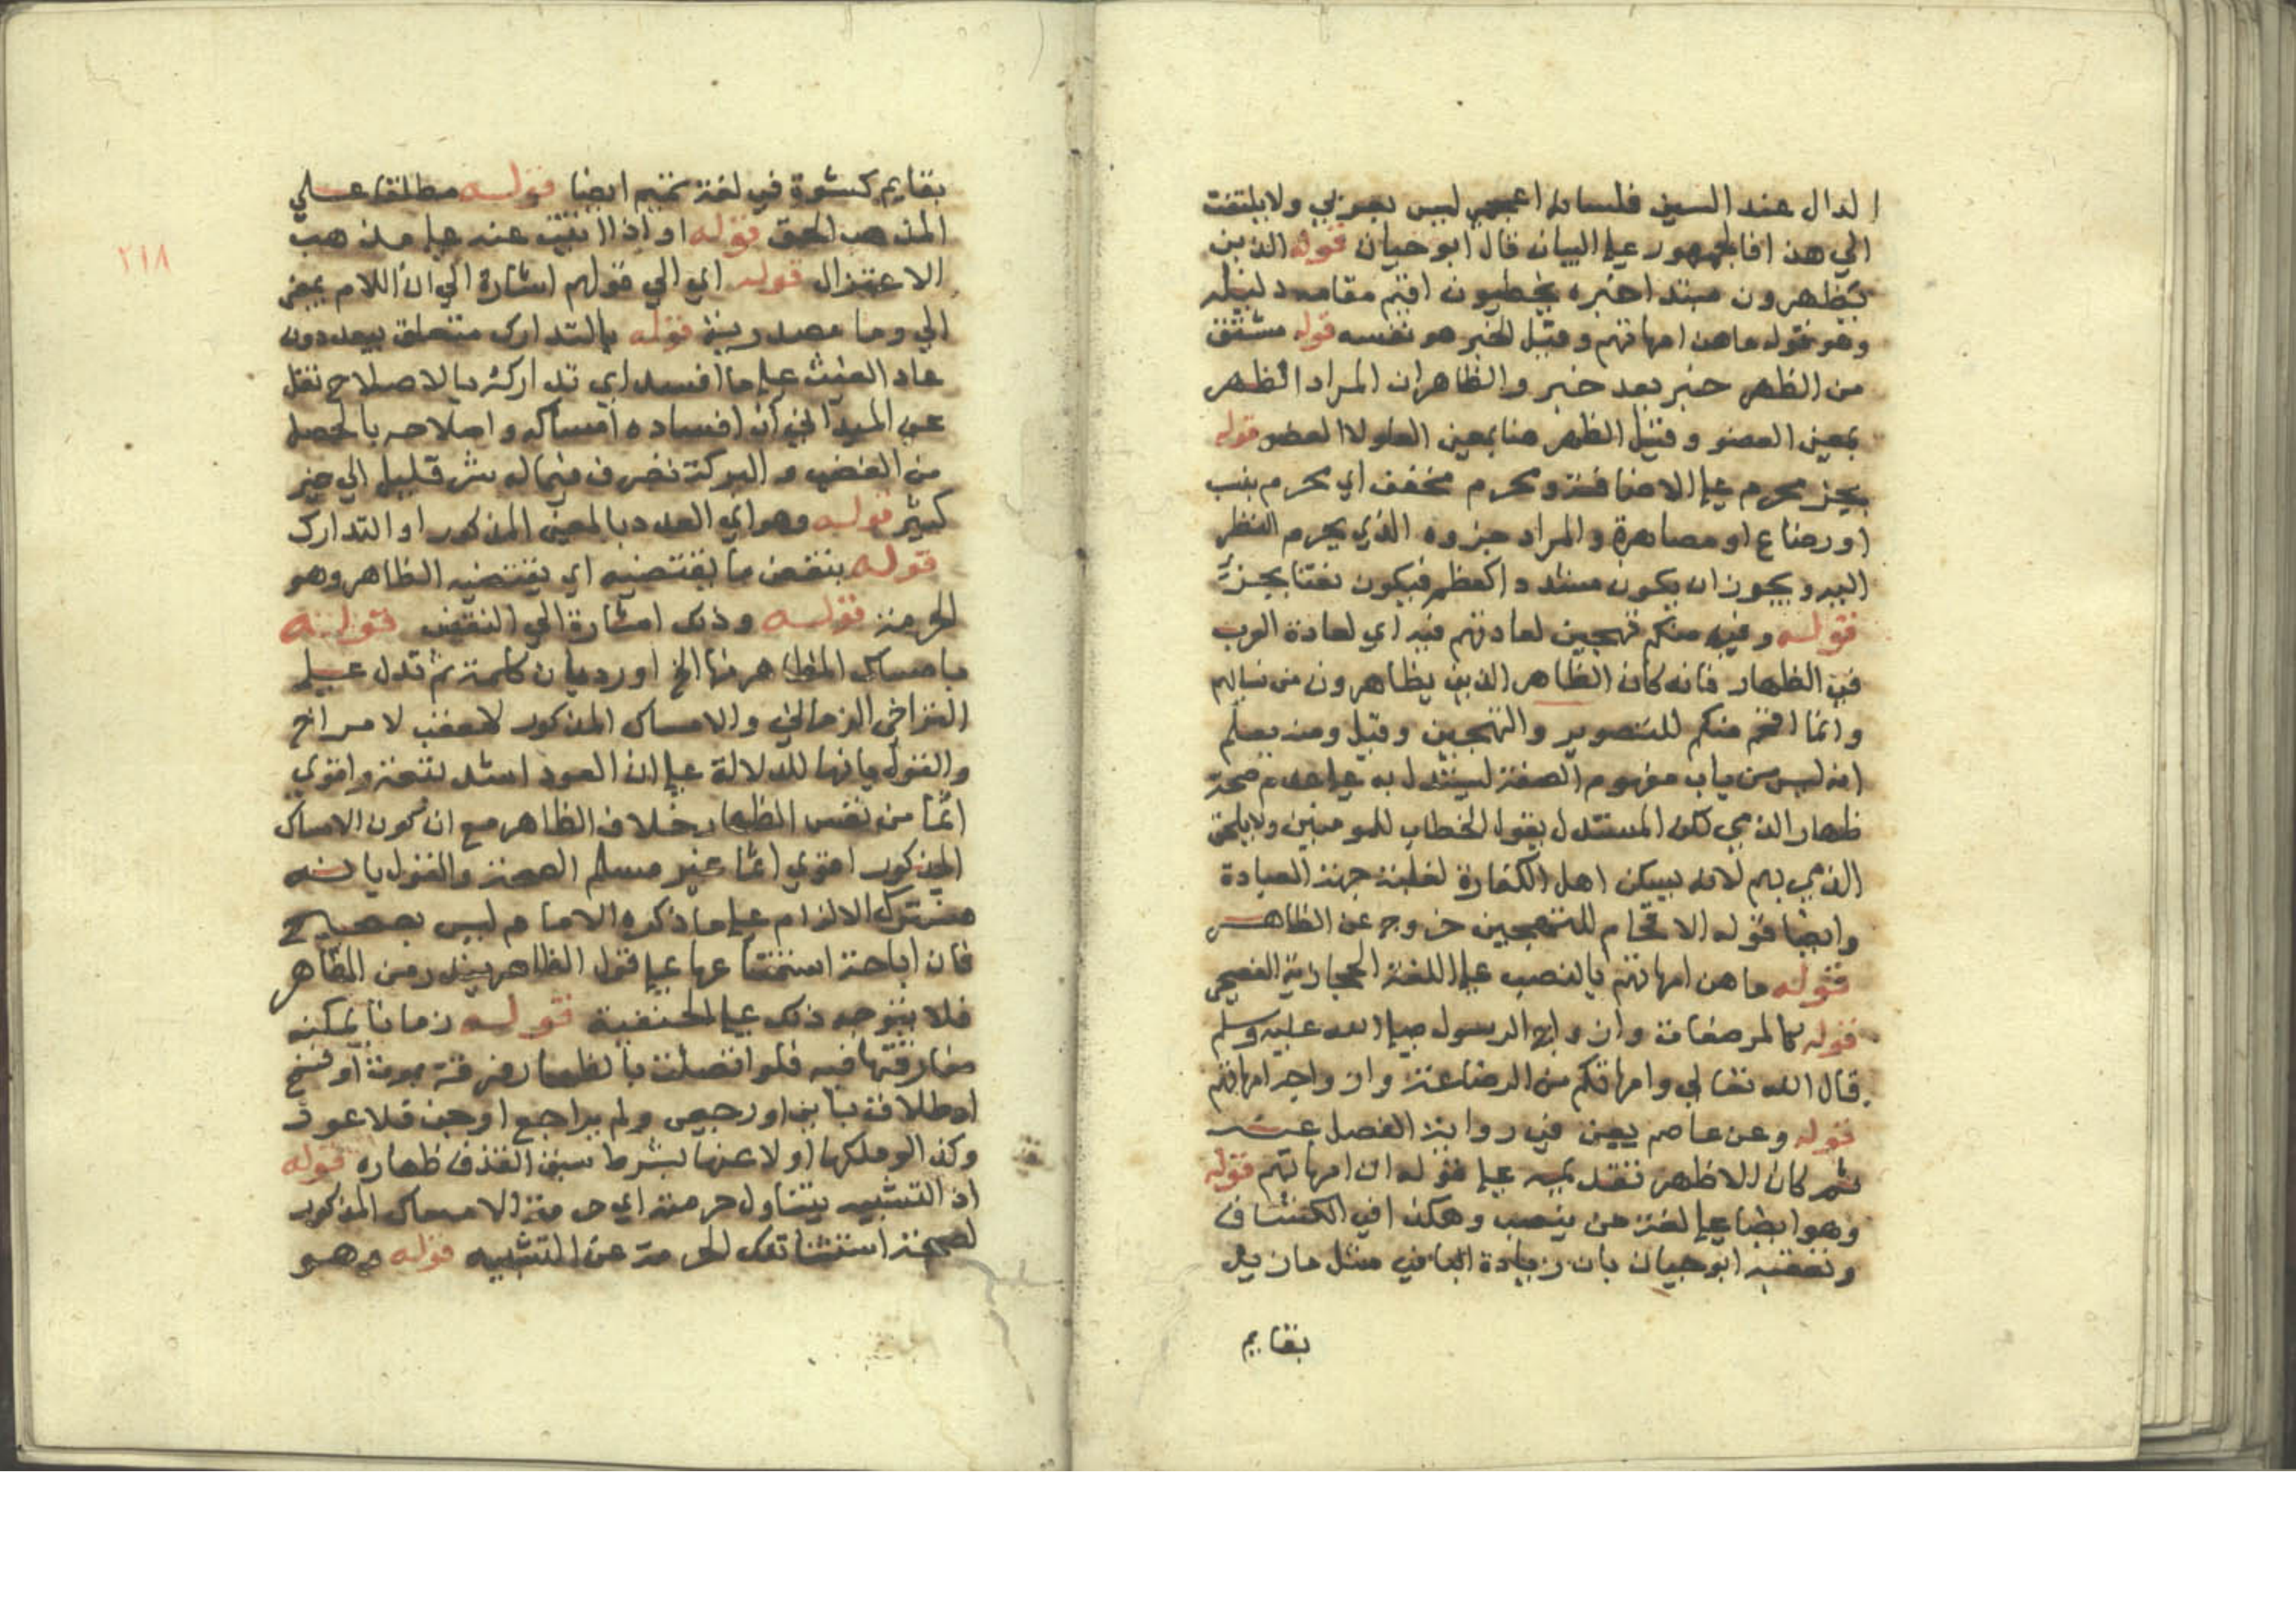 الدال عند السين فلسانه اعجمي ليس بعربي ولا يلتفت
الي هذا فالجمهور علي البيان قال ابو حيان قوله الذين
يظهرون مبتدا خبره يخطيون اقيم مقامه دليله
وهو قوله ما هن امهاتهم وقيل الخبر هو نفسه قوله مشتق
من الظهر خبر بعد خبر والظاهر ان المراد الظهر
بمعني العضو وقيل الظهر هنا بمعني العلو لا العضو قوله
بجزء محرم علي الاضافة ومحرم مخفف اي محرم بنسب
او رضاع او مصاهرة والمراد جزوه الذي يحرم النظر
اليه ويجوز ان يكون مشددا كمعظم فيكون نعتا بجزء
قوله وفيه منكم تهجين لعادتهم فيه اي لعادة العرب
في الظهار فانه كان الظاهر الذين يظاهرون من نسايهم
وانما اقحم منكم للتصوير والتهجين وقيل ومنه يعلم
انه ليس من باب مفهوم الصفة ليستدل به علي عدم صحة
ظهار الذمي لكن المستدل يقول الخطاب للمومنين ولا يلحق
الذمي بهم لانه ليس من اهل الكفارة لغلبة جهة العبادة
وايضا قوله الاقحام للتهجين خروج عن الظاهر
قوله ما هن امهاتهم بالنصب علي اللغة الحجازية الفصحي
قوله كالمرضعات وازواج الرسول صلي الله عليه وسلم
قال الله تعالي وامهاتكم من الرضاعة وازواجه امهاتهم
قوله وعن عاصم يعني في رواية المفضل عنه
ثم كان الاظهر تقديمه علي قوله ان امهاتهم قوله
وهو ايضا علي لغة من ينصب وهكذا في الكشاف
وتعقبه ابو حيان بان زيادة البا في مثل ما زيد
بقايم
٢١٨
بقايم كثيرة في لغة تميم ايضا قوله مطلقا علي
المذهب الحق قوله او اذا تيب عنه علي مذهب
الاعتزال قوله اي الي قولهم اشارة الي ان اللام بمعني
الي وما مصدرية قوله بالتدارك متعلق بيعودون
عاد الغيث علي ما افسد اي تداركه بالاصلاح نقل
عن الميداني ان افساده امساكه واصلاحه بالخصب
من الغضب والبركة تضرب فيما له شر قليل الي خير
كثير قوله وهو اي العود بالمعني المذكور او التدارك
قوله بنقض ما يقتضيه اي يقتضيه الظاهر وهو
الحرمة قوله وذلك اشارة الي النقض قوله
بامساك المظاهر منها الخ اورد بان كلمة ثم تدل علي
التراخي الزماني والامساك المذكور معقب لا متراخ
والقول بانها للدلالة علي ان العود اشد تبعة واقوي
اثما من نفس الظهار خلاف الظاهر مع ان كون الامساك
المذكور اقوي اثما غير مسلم الصحة والقول بانه
مشترك الالزام علي ما ذكره الامام ليس بصحيح
فان اباحة استمتاعها علي قول الظاهر من المظاهر
فلا يتوجه ذلك علي الحنفية قوله زمانا يمكنه
مفارقتها فيه فلو اتصلت بالظهار فرقة بموت او فسخ
او طلاق باين او رجعي ولم يراجع او جن فلا عود
وكذا لو ملكها او لاعنها بشرط سبق القذف ظهاره قوله
اذ التشبيه يتناول حرمته اي حرمة الامساك المذكور
لصحة استثنا تلك الحرمة عن التشبيه قوله وهو